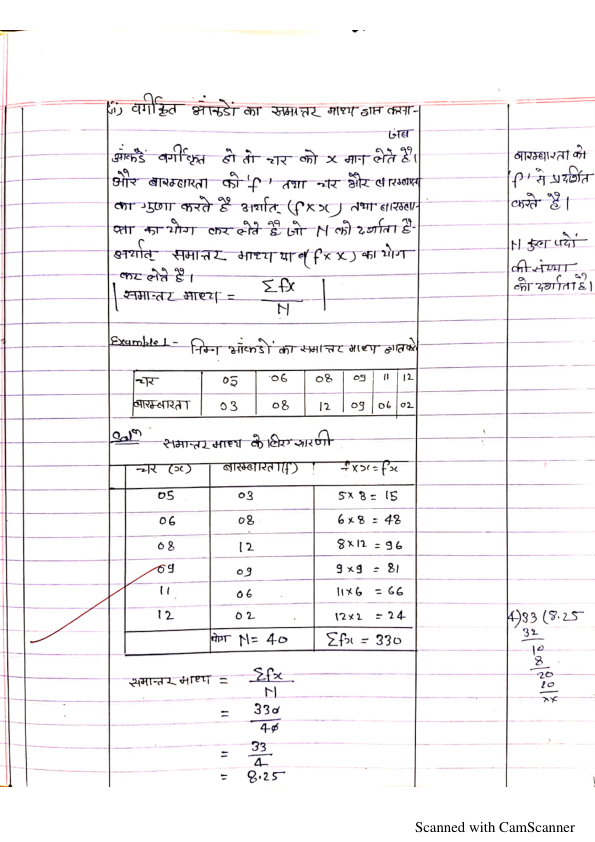 (ii) वर्गीकृत आंकडों का समान्तर माध्य ज्ञात करना-
जब
आंकडें वर्गीकृत हो तो चर को x मान लेते है।
और बारम्बारता को 'f' तथा चर और बारम्बारता
का गुणा करते है अर्थात् (f×x) तथा बारम्बा-
रता का योग कर लेते है जो N को दर्शाता है-
अर्थात् समान्तर माध्य या (f×x) का योग
कर लेते है।
समान्तर माध्य = Σfx / N
बारम्बारता को
'f' से प्रदर्शित
करते है।
N कुल पदों
की संख्या
को दर्शाता है।
Example 1- निम्न आंकडों का समान्तर माध्य ज्ञात करो
चर 05 06 08 09 11 12
बारम्बारता 03 08 12 09 06 02
Solⁿ समान्तर माध्य के लिए सारणी
चर (x) बारम्बारता (f) f×x=fx
05 03 5×8=15
06 08 6×8=48
08 12 8×12=96
09 09 9×9=81
11 06 11×6=66
12 02 12×2=24
योग N=40 Σfx=330
समान्तर माध्य = Σfx / N
= 330 / 40
= 33 / 4
= 8.25
4)33(8.25
32
10
8
20
20
××
Scanned with CamScanner